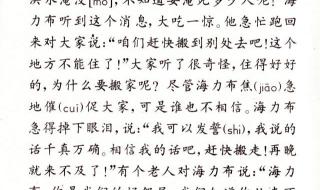 淹没[mò]，不知道要淹死多少人呢！海
力布听到这个消息，大吃一惊。他急忙跑回
来对大家说："咱们赶快搬到别处去吧！这个
地方不能住了！"大家听了很奇怪，住得好好
的，为什么要搬家呢？尽管海力布焦(jiāo)急
地催(cuī)促大家，可是谁也不相信。海力布
急得掉下眼泪，说："我可以发誓(shì)，我说的
话千真万确。相信我的话吧，赶快搬走！再晚
就来不及了！"有个老人对海力布说："海力